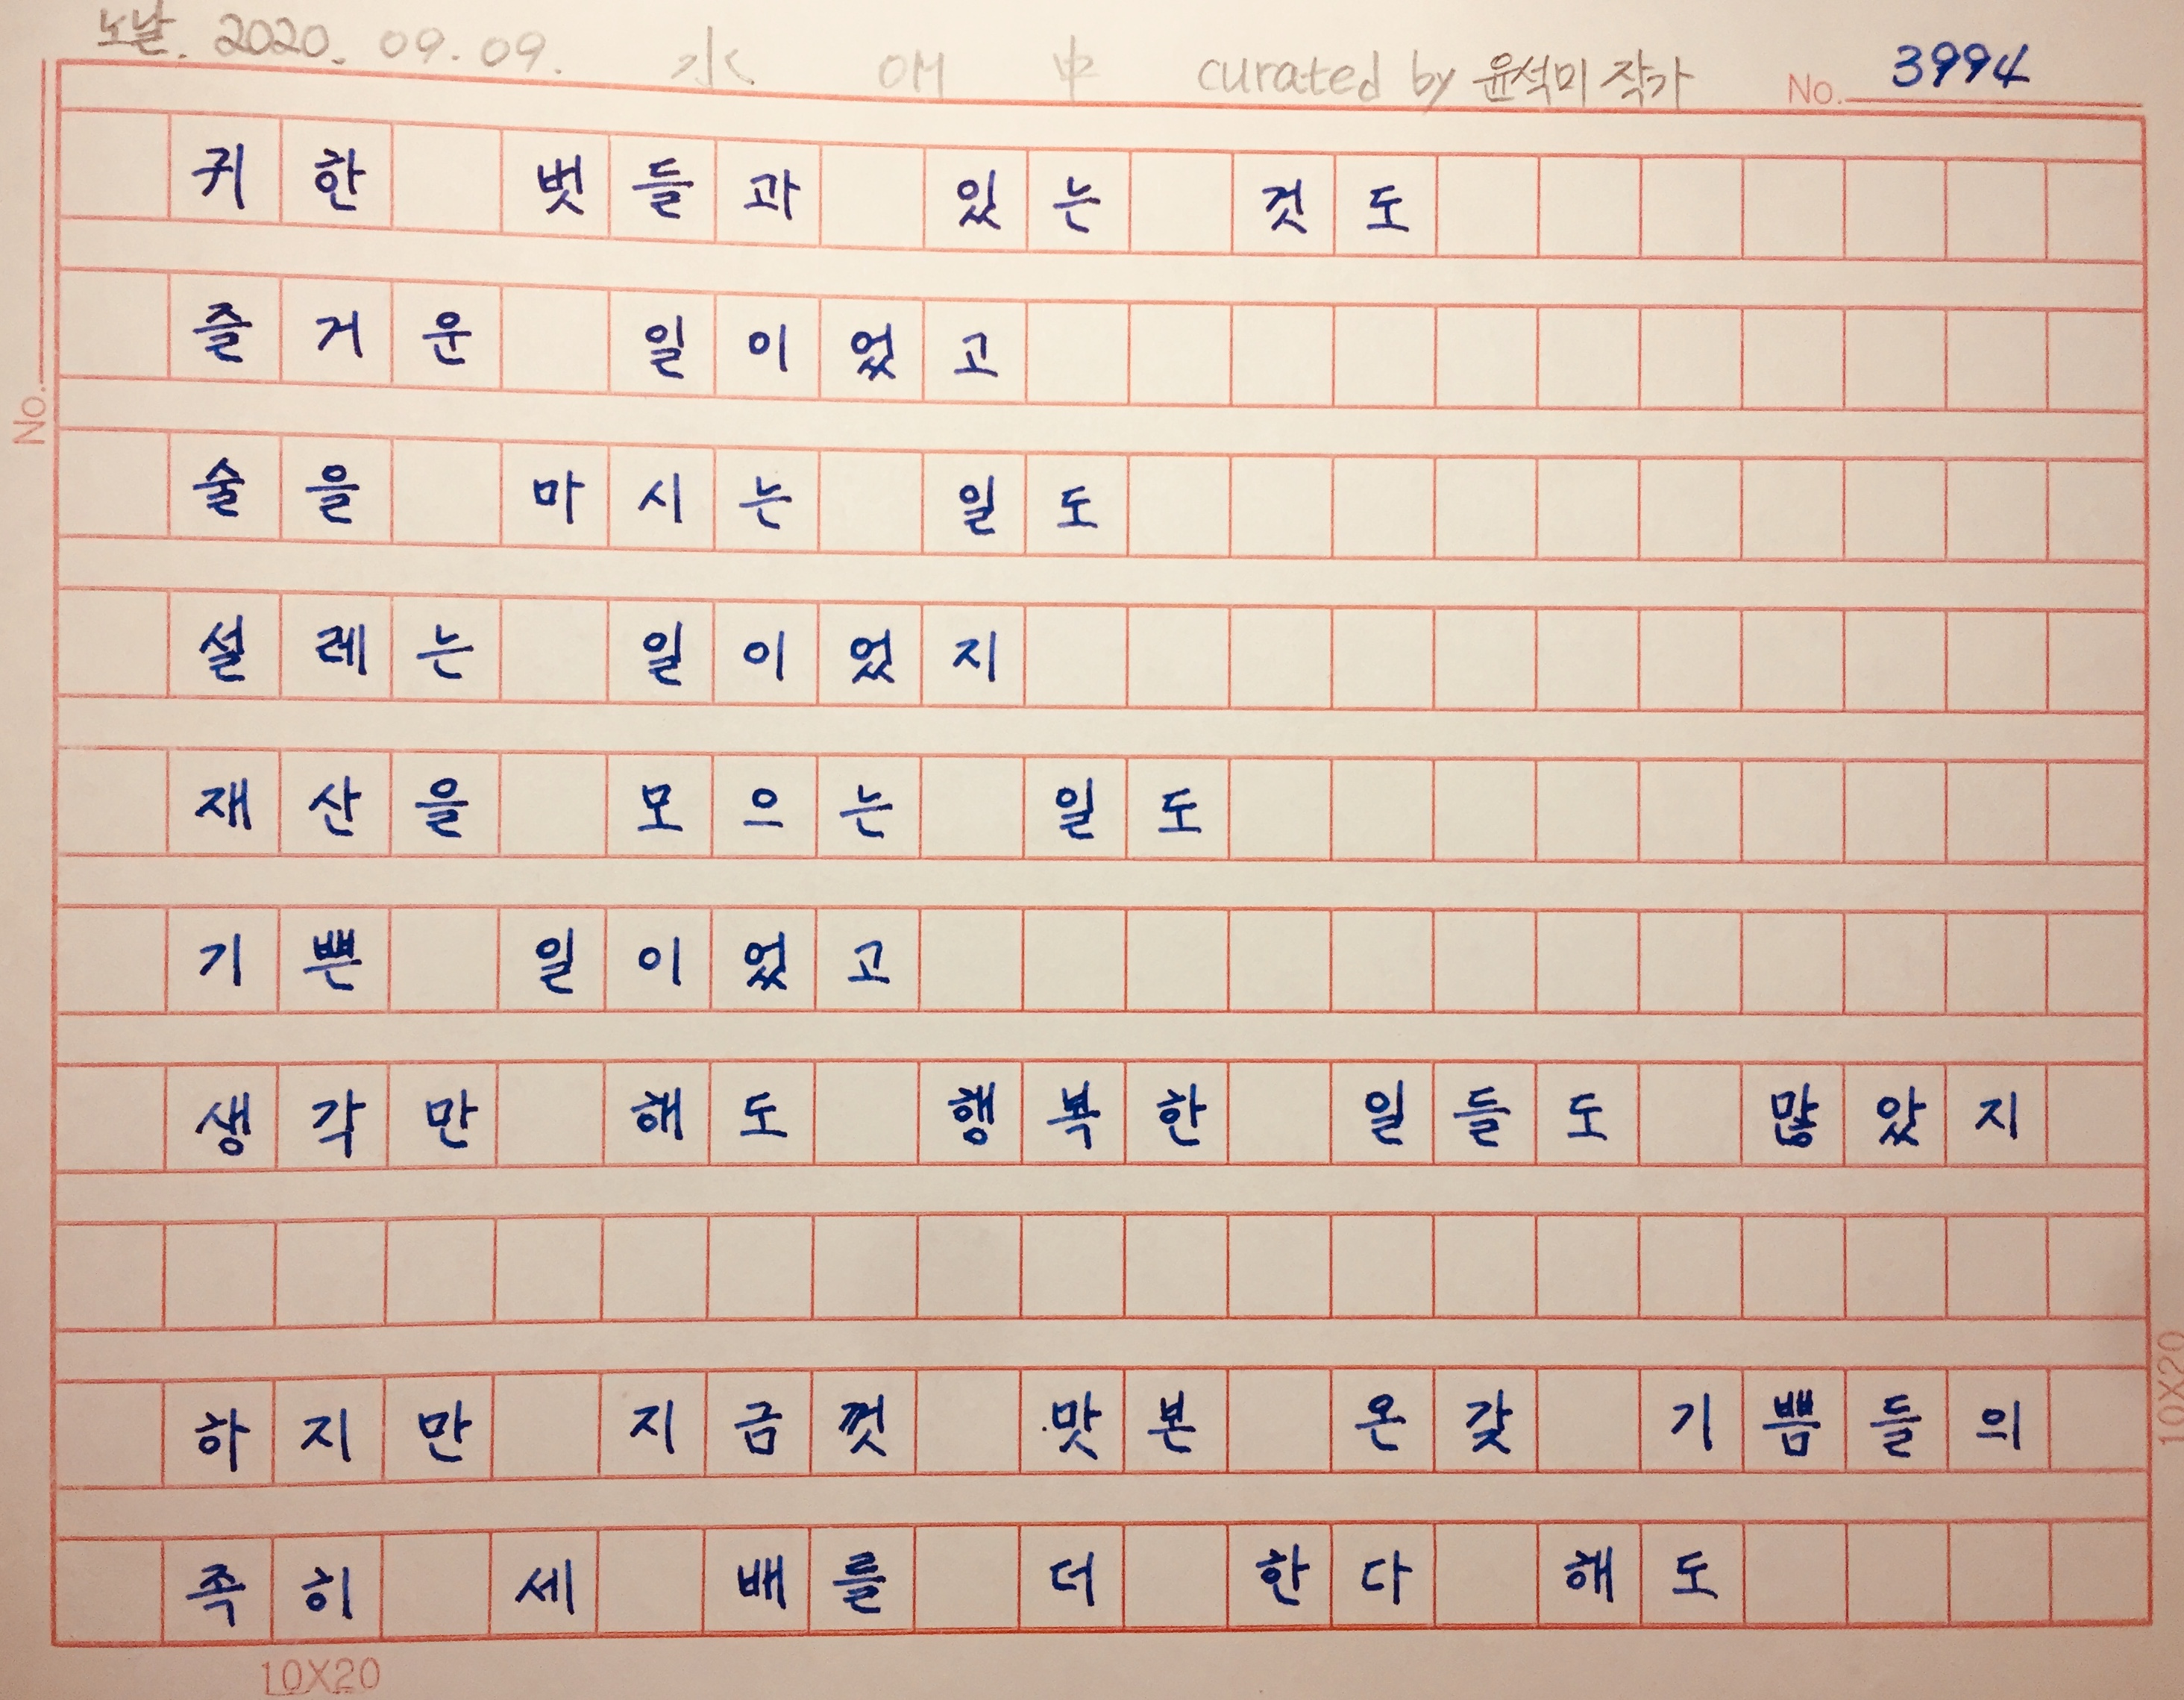 노날. 2020. 09. 09. 水 OH 中 curated by 윤석미 작가 No. 3994
귀한 벗들과 있는 것도
즐거운 일이었고
No.
술을 마시는 일도
설레는 일이었지
재산을 모으는 일도
기쁜 일이었고
생각만 해도 행복한 일들도 많았지
하지만 지금껏 맛본 온갖 기쁨들의
10X20
족히 세 배를 더 한다 해도
10X20